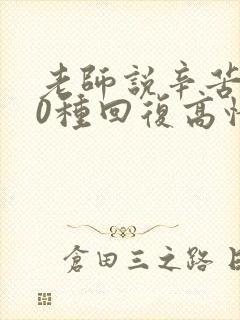 老師說辛苦
0種回復高
倉田三之路